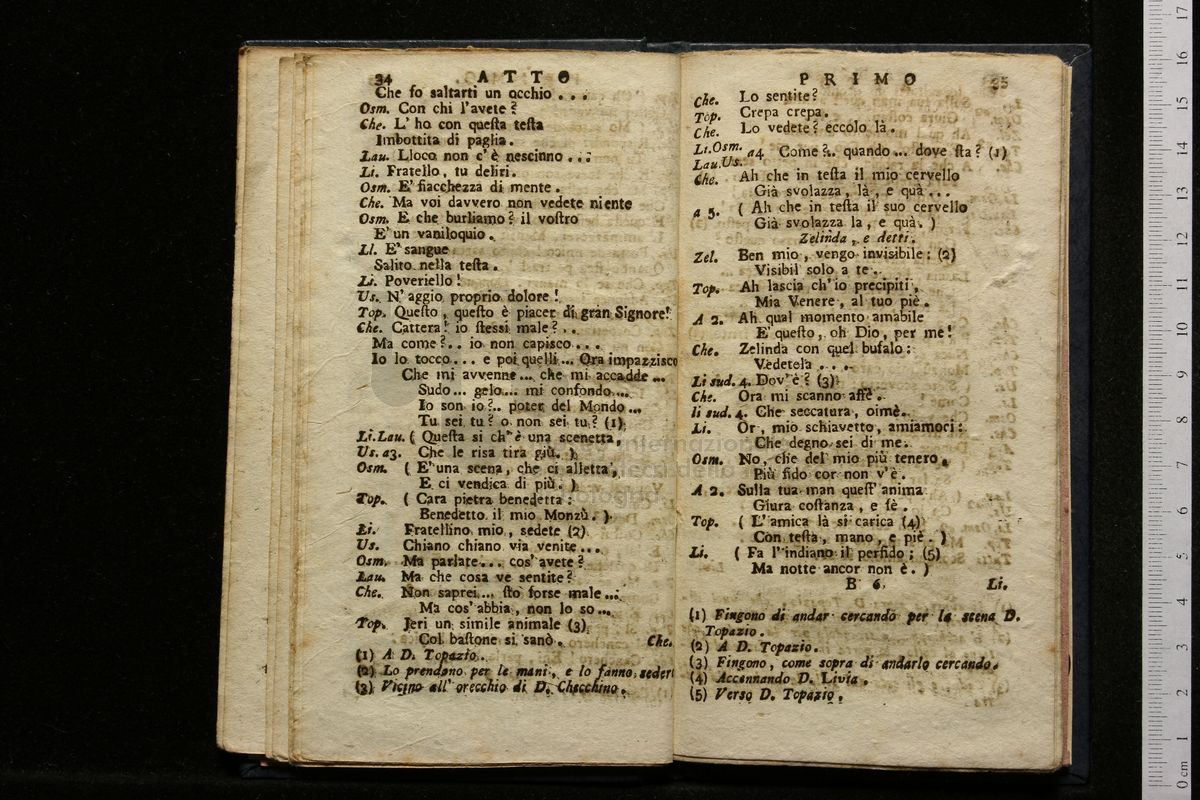 34 ATTO
Che fo saltarti un occhio . . .
Osm. Con chi l'avete?
Che. L' ho con queſta teſta
Imbottita di paglia.
Lau. Lloco non c'è nescinno . . .
Li. Fratello, tu deliri.
Osm. E' fiacchezza di mente.
Che. Ma voi davvero non vedete niente
Osm. E che burliamo? il voſtro
E' un vaniloquio.
Ll. E' sangue
Salito nella teſta.
Li. Poveriello!
Us. N' aggio proprio dolore!
Top. Queſto, queſto è piacer di gran Signore!
Che. Cattera! io ſtessi male? . .
Ma come? . . io non capisco . . .
Io lo tocco . . . e poi quelli ... Ora impazzisco
Che mi avvenne ... che mi accadde ...
Sudo ... gelo ... mi confondo ...
Io son io? .. poter del Mondo ...
Tu sei tu? o non sei tu? (1)
Li. Lau. ( Queſta si ch' è una scenetta,
Us. a3. Che le risa tira giù. )
Osm. ( E' una scena, che ci alletta,
E ci vendica di più. )
Top. ( Cara pietra benedetta:
Benedetto il mio Monzù. )
Li. Fratellino mio, sedete (2)
Us. Chiano chiano via venite ...
Osm. Ma parlate . . . cos' avete?
Lau. Ma che cosa ve sentite?
Che. Non saprei ... ſto forse male ...
Ma cos' abbia, non lo so ...
Top. Jeri un simile animale (3)
Col baſtone si sanò.
Che.
(1) A D. Topazio.
(2) Lo prendono per le mani, e lo fanno seder
(3) Vicino all' orecchio di D. Checchino.
PRIMO 35
Che. Lo sentite?
Top. Crepa crepa.
Che. Lo vedete? eccolo là.
Li. Osm. Lau. Us. a4 Come? .. quando ... dove ſta? (1)
Che. Ah che in teſta il mio cervello
Già svolazza, là, e quà ...
a 5. ( Ah che in teſta il suo cervello
Già svolazza la, e quà. )
Zelinda, e detti.
Zel. Ben mio, vengo invisibile: (2)
Visibil solo a te.
Top. Ah lascia ch' io precipiti,
Mia Venere, al tuo piè.
A 2. Ah qual momento amabile
E' queſto, oh Dio, per me!
Che. Zelinda con quel bufalo:
Vedetela . . . .
Li sud. 4. Dov' è? (3)
Che. Ora mi scanno affè.
li sud. 4. Che seccatura, oimè.
Li. Or, mio schiavetto, amiamoci:
Che degno sei di me.
Osm. No, che del mio più tenero,
Più fido cor non v'è.
A 2. Sulla tua man queſt' anima
Giura coſtanza, e fè.
Top. ( L' amica là si carica (4)
Con teſta, mano, e piè. )
Li. ( Fa l' indiano il perfido; (5)
Ma notte ancor non è. )
B 6. Li.
(1) Fingono di andar cercando per la scena D.
Topazio.
(2) A D. Topazio.
(3) Fingono, come sopra di andarlo cercando.
(4) Accennando D. Livia.
(5) Verso D. Topazio.
0 cm 1 2 3 4 5 6 7 8 9 10 11 12 13 14 15 16 17